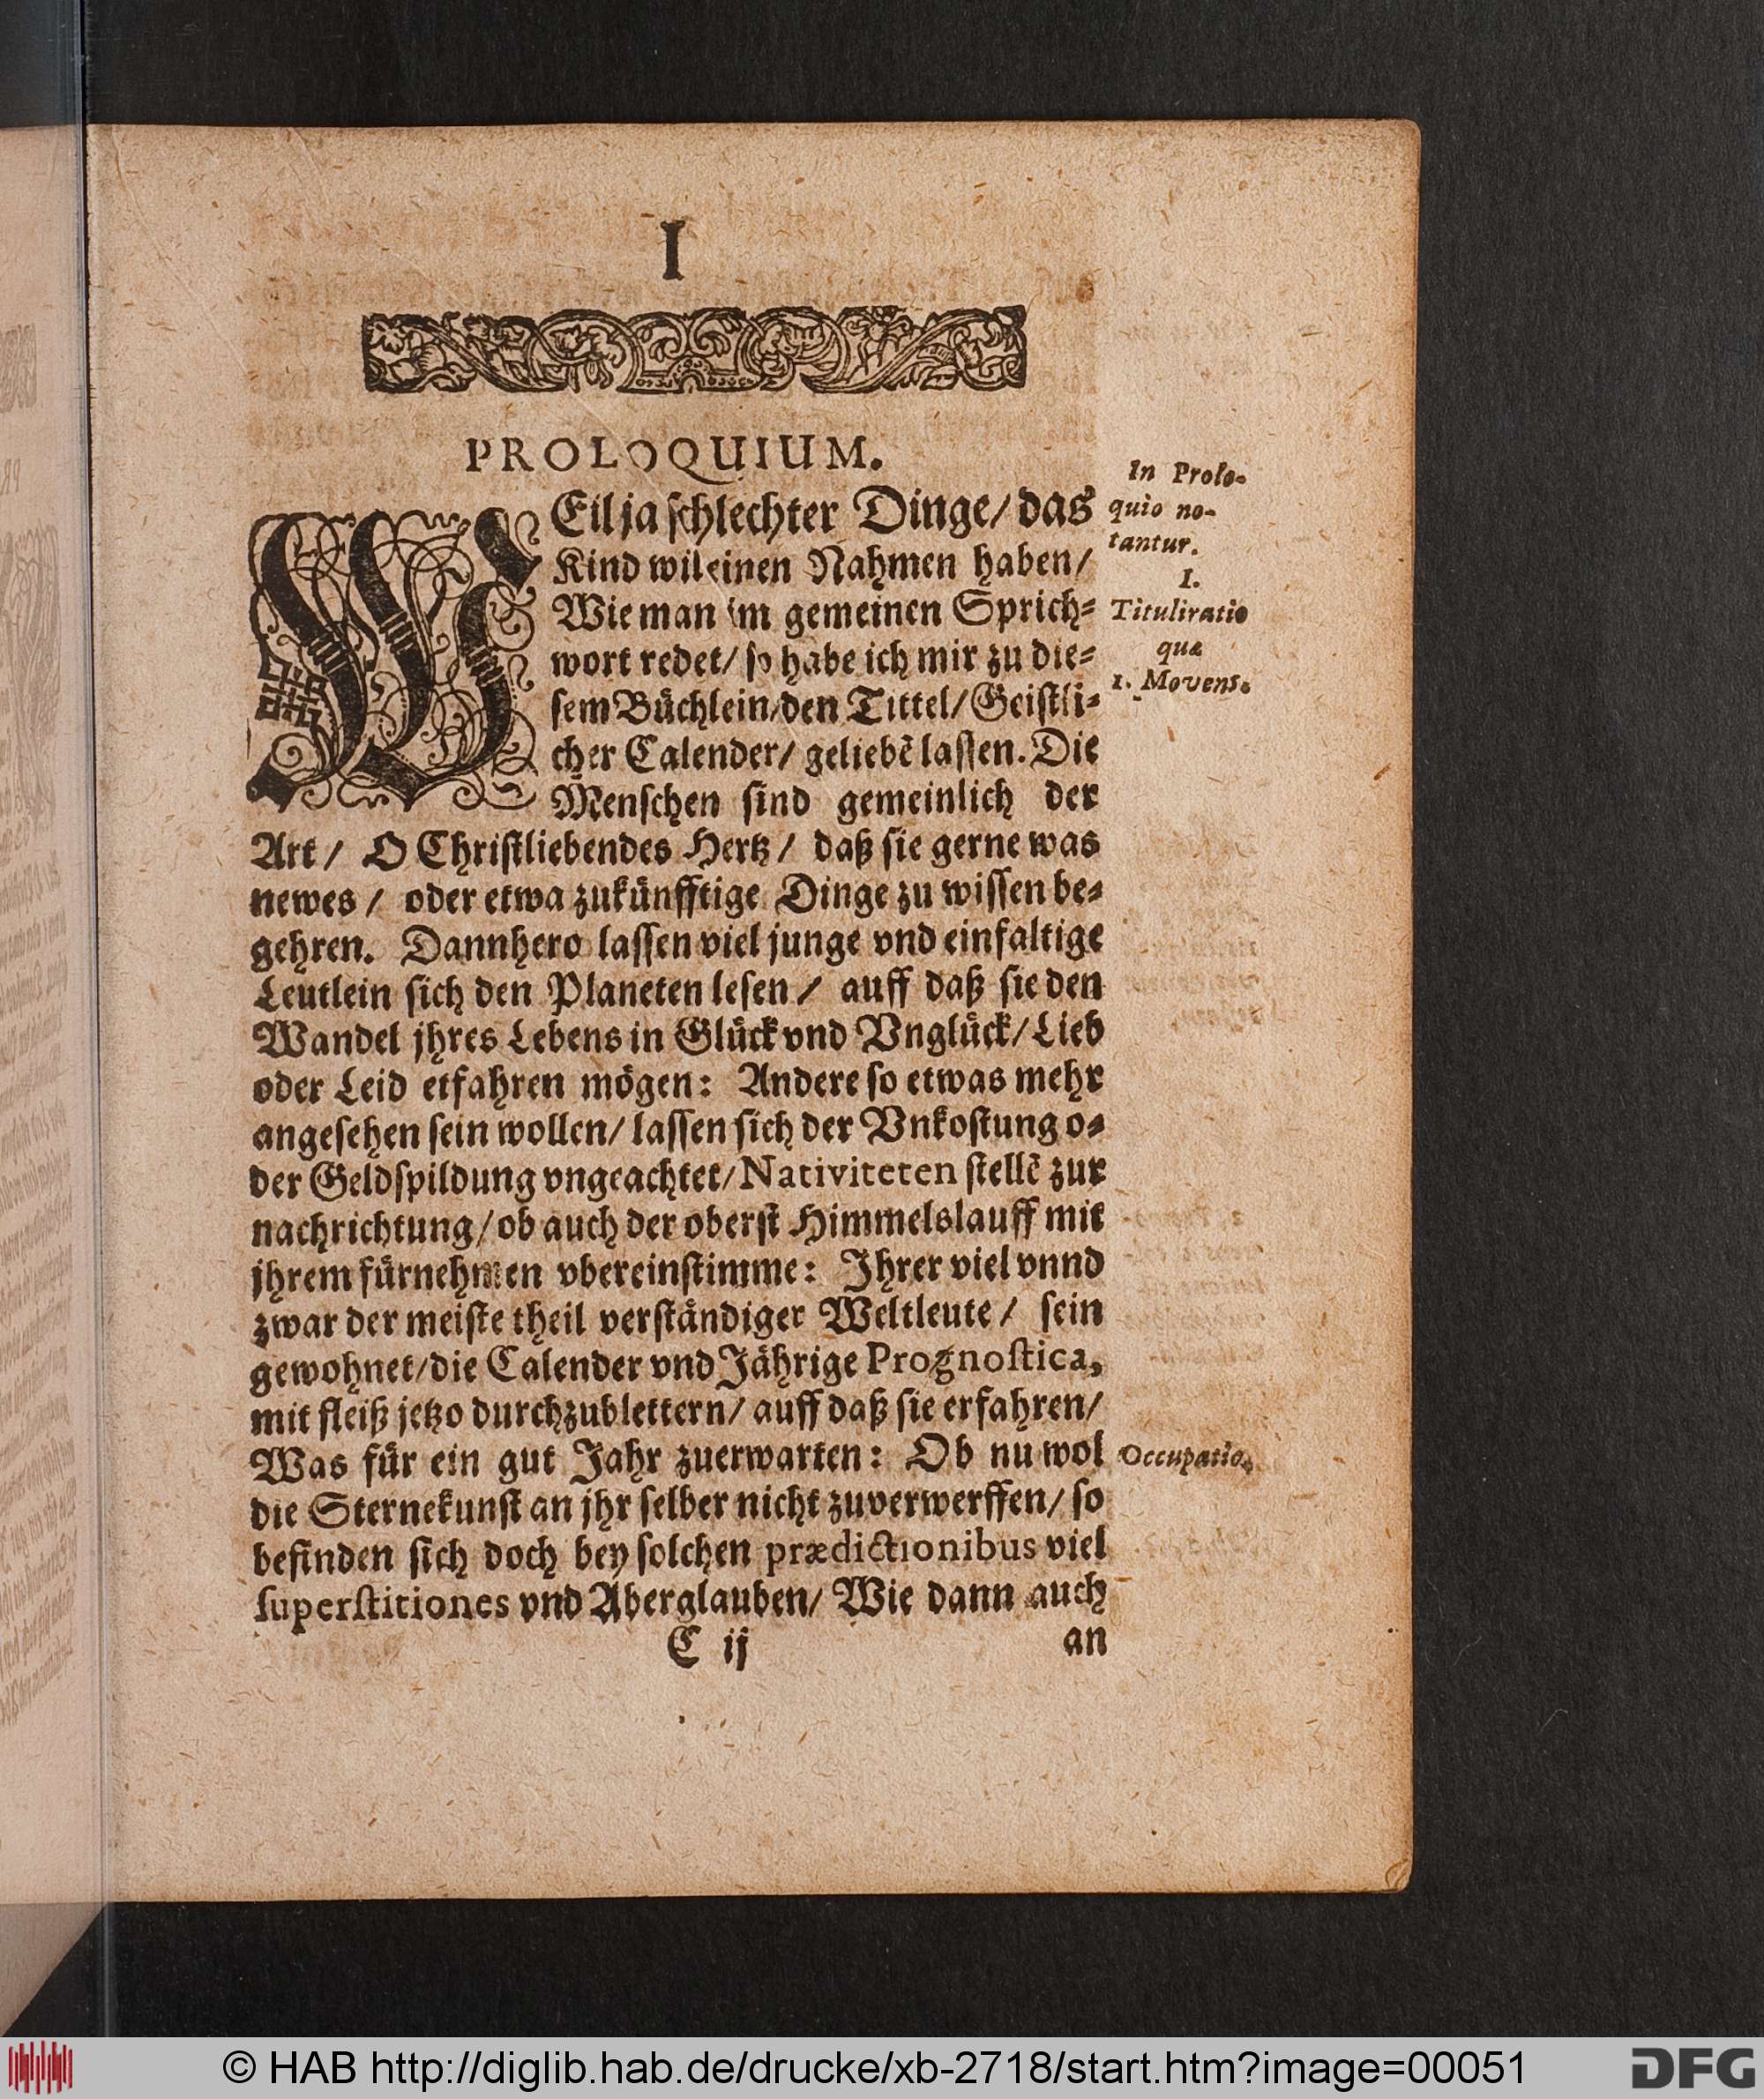 I
PROLOQUIUM.
WEil ja schlechter Dinge/ das
Kind wil einen Nahmen haben/
Wie man im gemeinen Sprich=
wort redet/ so habe ich mir zu die=
sem Bůchlein/den Tittel/ Geistli=
cher Calender/ geliebẽ lassen. Die
Menschen sind gemeinlich der
Art/ O Christliebendes Hertz/ daß sie gerne was
newes/ oder etwa zukůnfftige Dinge zu wissen be=
gehren. Dannhero lassen viel junge vnd einfaltige
Leutlein sich den Planeten lesen/ auff daß sie den
Wandel jhres Lebens in Glůck vnd Vnglůck/ Lieb
oder Leid etfahren mŏgen: Andere so etwas mehr
angesehen sein wollen/ lassen sich der Vnkostung o=
der Geldspildung vngeachtet/ Nativiteten stellẽ zur
nachrichtung/ ob auch der oberst Himmelslauff mit
jhrem fůrnehmen vbereinstimme: Ihrer viel vnnd
zwar der meiste theil verståndiger Weltleute/ sein
gewohnet/die Calender vnd Jåhrige Prognostica,
mit fleiß jetzo durchzublettern/ auff daß sie erfahren/
Was fůr ein gut Jahr zuerwarten: Ob nu wol
die Sternekunst an jhr selber nicht zuverwerffen/ so
befinden sich doch bey solchen prædictionibus viel
superstitiones vnd Aberglauben/ Wie dann auch
C ij
an
In Prolo-
quio no-
tantur.
I.
Tituliratio
quæ
1. Movens.
Occupatio.
© HAB http://diglib.hab.de/drucke/xb-2718/start.htm?image=00051
DFG